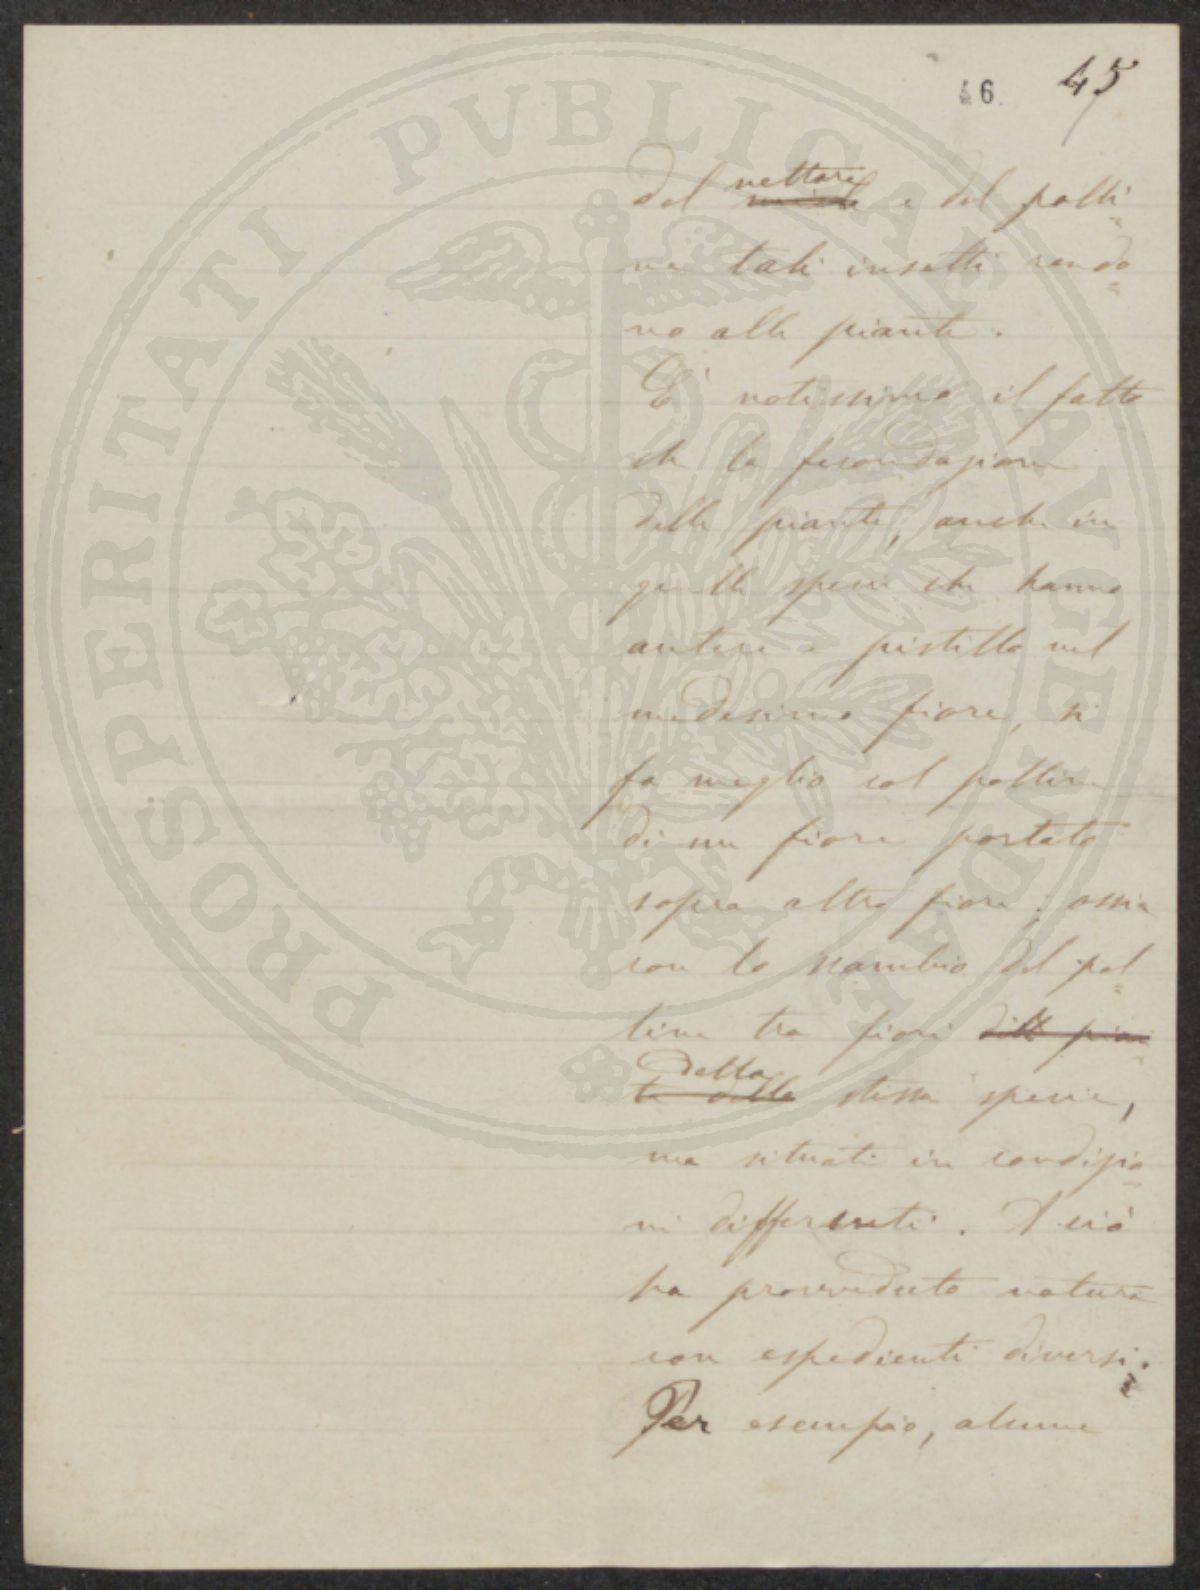 46.
45
del nettare ~~miele~~ e del polli=
ne tali insetti rendo=
no alle piante.
È notissimo il fatto
che la fecondazione
delle piante, anche in
quelle specie che hanno
antere e pistillo nel
medesimo fiore, si
fa meglio col polline
di un fiore portato
sopra altro fiore; ossia
con lo scambio del pol=
line tra fiori ~~delle pian=~~
~~te della~~ della stessa specie,
ma situati in condizio=
ni differenti. A ciò
ha provveduto natura
con espedienti diversi.
Per esempio, alcune
PROSPERITATI PVBLICAE AVGENDAE